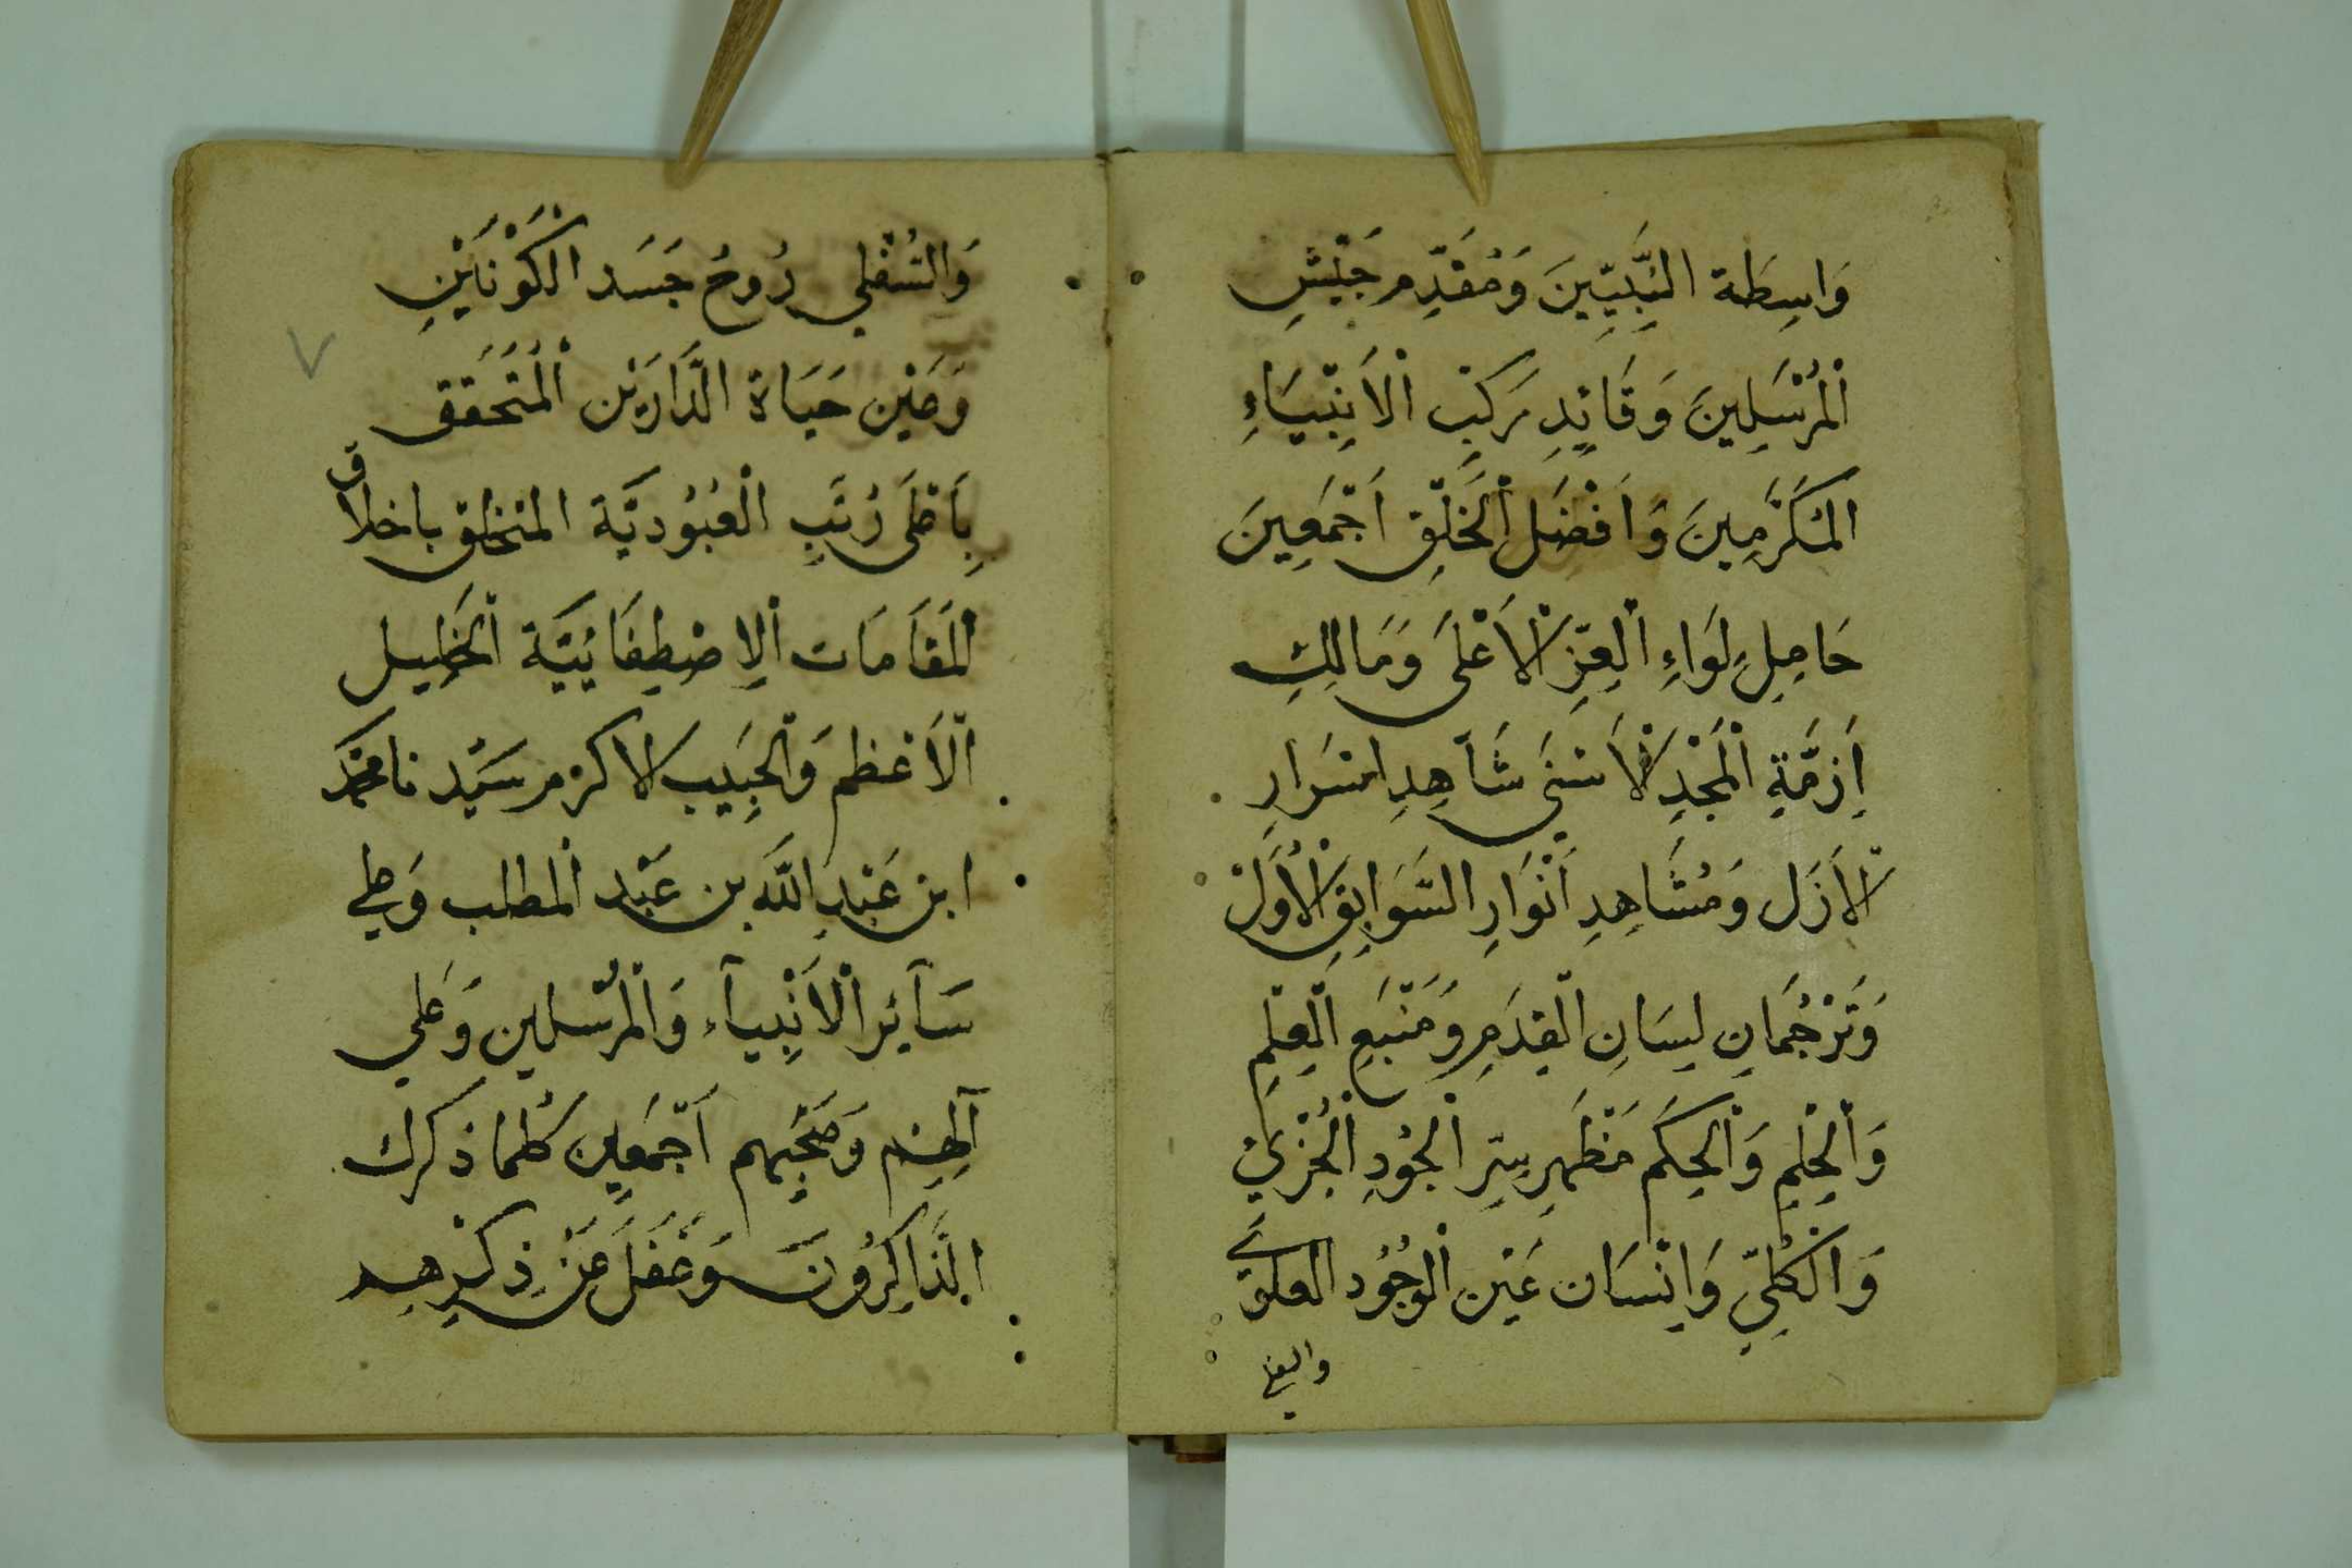 وَاسِطَة النَّبِيّينَ وَمُقَدَّمِ جَيْشِ
الْمُرْسَلِينَ وَقَائِدِ رَكْبِ الْاَنْبِيَاءِ
المُكَرَّمِينَ وَاَفْضَلِ الْخَلْقِ اَجْمَعِينَ
حَامِلِ لِوَاءِ الْعِزِّ الْاَعْلَى وَمَالِكِ
اَزِمَّةِ الْمَجْدِ الْاَسْنَى شَاهِدِ اسْرَارِ
الْاَزَل وَمُشَاهِدِ اَنْوَارِ السَّوَابِقِ الْاُوَلْ
وَتَرْجُمَانِ لِسَانِ الْقِدَمِ وَمَنْبَعِ الْعِلْمِ
وَالْحِلْمِ وَالْحِكَم مَظْهَرِ سِرِّ الْجُودِ الْجُزْئِيْ
وَالْكُلِّيِّ وَاِنْسَان عَيْن الْوُجُود العلوي
والسفلي
وَالسُفْلِي رُوحُ جَسَد الْكَوْنَيْنِ
وَعَيْن حَيَاة الدَّارَيْن الْمُتَحَقق
بِاَعْلَى رُتَبِ الْعُبُودِيَّة المتخلق باخلاق
الْمَقَامَات الْاِصْطِفَائِيَّة الْخَلِيل
الْاَعْظم وَالْحَبِيب الاكرم سَيِّد نا محمَّد
ابن عَبْدِ اللَّه بن عَبْد الْمطلب وَعلي
سَآئِر الْاَنْبِيآء وَالْمُرْسلين وَعَلي
آلِهِمْ وَصَحْبِهم اَجْمَعِين كُلما ذكرك
الذَّاكِرُونَ وَغَفَلَ عَنْ ذِكْرِهِم